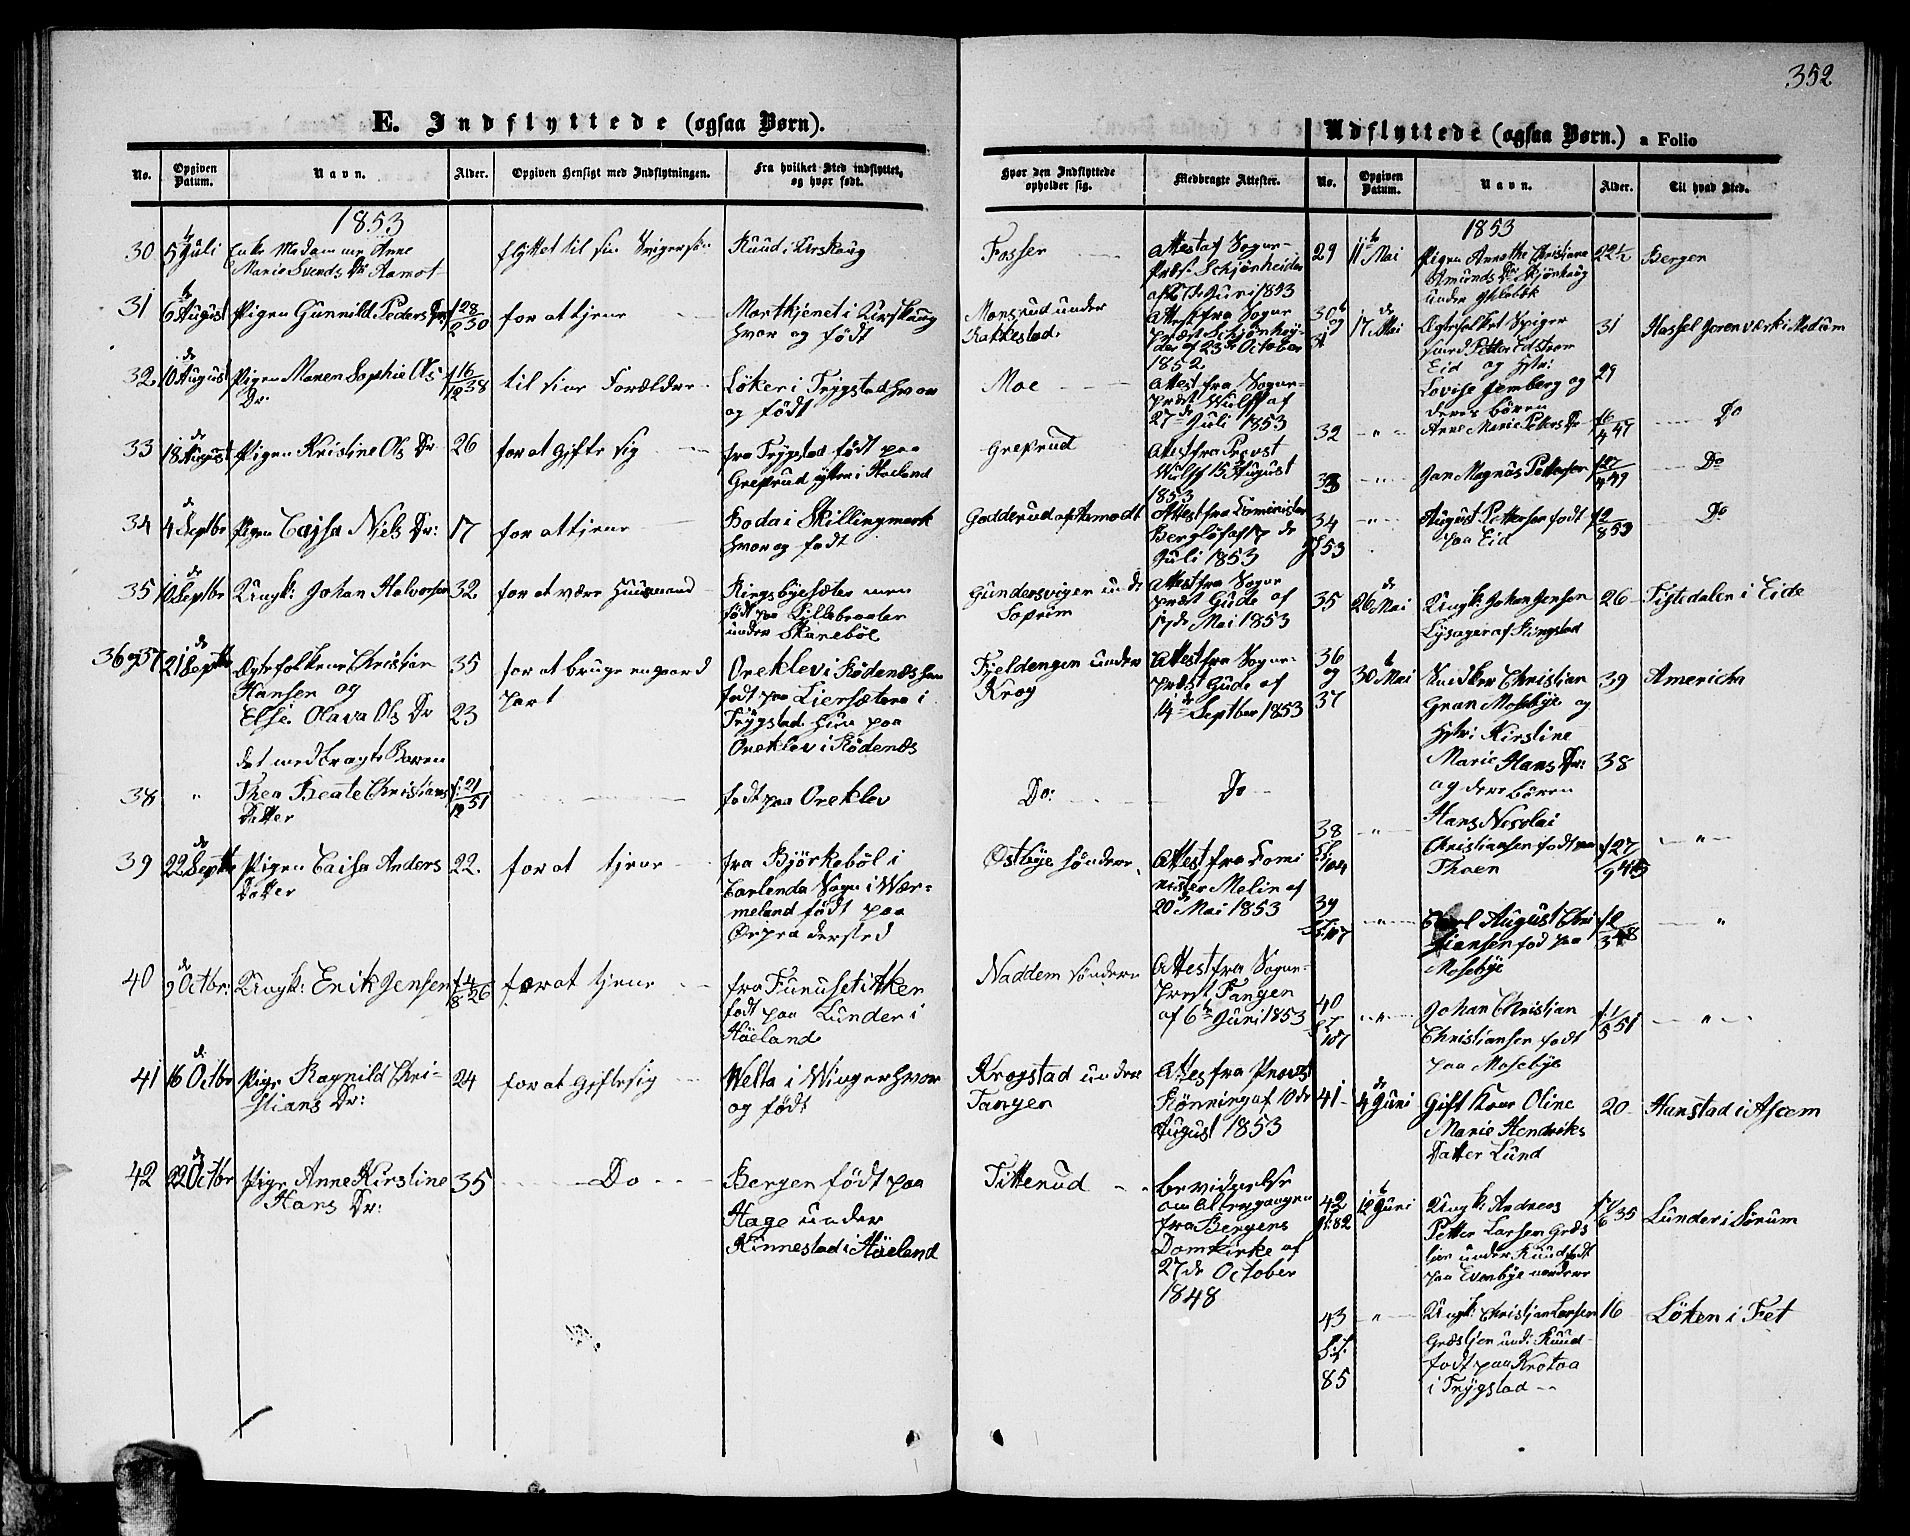 352
E. Indflyttede (ogsaa Børn).
No.
Opgiven Datum.
Navn.
Alder.
Opgiven Hensigt med Indflytningen.
Fra hvilket Sted indflyttet, og hvor født.
Hvor den Indflyttede opholder sig.
Medbragte Attester.
1853
30 5te Juli Enke Madamme Anne
Marie Svends Dr Aamot
flyttet til sin Svigersøn
Ruud i Urskoug
Fosser
Attest af Sogne-
Præst Schjønheider
af 27de Juni 1853
31 6te August Pigen Gunnild Peders Dr f 28/2 30
for at tjene
Mortkjenet i Urskoug
hvor og født
Monsrud under
Kakkestad.
Attest fra Sogne
præst Schjønhey-
der af 23de October
1852
32 10de August Pigen Maren Sophie Ols
Dr:
f 16/12 38
til sine Forældre
Løken i Trygstad hvor
og født
Moe
Attest fra Sogne-
præst Wulff af
27de Juli 1853
33 18de August Pigen Kristine Ols Dr 26
for at gifte sig
fra Trygstad født paa
Grefsrud ytter i Høeland
Grefsrud
Attest fra Provst
Wulff 15 August
1853
34 4de Septbr Pigen Cajsa Niels Dr: 17
for at tjene
Boda i Skillingmark
hvor og født
Godderud af Aamodt
Attest fra Comminister
Berglöf af 17de
Juli 1853
35 10de Septbr Ungk: Johan Halvorsen 32
for at være Huusmand
Ringsbyesæter men
født paa Lillebraaten
under Skanebøl
Gundersvigen unde
Soprim
Attest fra Sogne
præst Gude af
17de Mai 1853
36 og 37 21de Septbr Ægtefolkene Christian
Hansen og
35
Else Olava Ols Dr
23
for at bruge en gaard
part
Oreklev i Rødenæs han
født paa Liersætera i
Trygstad hun paa
Oreklev i Rødenæs
Fjeldengen under
Krog
Attest fra Sogne-
præst Gude af
14de Septber 1853
det medbragte Baren
38 " Thea Beate Christians
Datter
f: 21/12 51
født paa Oreklev
Do:
Do
39 22de Septbr Pigen Caisa Anders
Datter
22.
for at tjene
fra Bjørkebøl i
Carlenda Sogn i Wær-
meland født paa
dersted
Østbye søndere
Attest fra Komi
nister Melin af
20de Mai 1853
40 9de Octbr: Ungk: Erik Jensen f 4/8 26
før at tjene
fra Furuset i Aker
født paa Lunder i
Høeland
Naddem søndere
Attest fra Sogne-
prest Fangen
af 6te Juni 1853
41 16de Octbr Pige Ragnild Chri-
stians Dr:
24
for at gifte sig
Welta i Winger hvor
og født
Krogstad under
Tangen
Attes fra Provst
Rønning af 10de
August 1853
42 22de Octbr Pige Anne Kirstine
Hans Dr:
35
Do
Bergen født paa
Hage under
Kinnestad i Høeland
Tittenud
bevidnelse
om Altergangen
fra Bergens
Domkirke af
27de October
1848
Udflyttede (ogsaa Børn.) a Folio
No.
Opgiven Datum.
Navn.
Alder.
Til hvad Sted.
1853
29 11te Mai Pigen Annethe Christiane
Amunds Dr Skjønhaug
under
22½
Bergen
30 og 31 17de Mai Ægtefolket Spiger
smed Petter Edstrøm
Eid og hstr:
31
Hassel Jernværk i Modum
Lovise Jernberg og
deres børen
29
32 " Anne Marie Petters Dr f 6/4 47
Do
33 " Jan Magnus Pettersen f 27/4 49
Do
34 " August Pettersen født
paa Eid
f 2/8 53
53
Do
35 26de Mai Ungk: Johan Jensen
Lysager af Ringstad
26
Tistedalen i Eide
36
og
37
30te Mai Snedker Christian
Gran Mosebye og
39
America
hstr: Kirstine
Marie Hans Dr:
38
og dere børen
38 " Hans Nicolai
Christiansen født paa
Thoen
f 27/9 45
"
104
39 " Carl August Chri
stiansen fød paa
Mosebye
f 2/3 48
"
107
40 " Johan Christian
Christiansen født
paa Mosebye
f 1/5 51
"
107
41 4de Juni Gift Kone Oline
Marie Hendriks
Datter Lund
20
Hunstad i Ascem
42 12te Juni Ungk: Andreas
Petter Larsen Græs
lien under Ruud født
paa Evenbye nordere
35
Lunder i Sørum
82
43 " Ungk: Christian Larsen
Græslien und: Ruud
født paa Krotoa
i Trygstad
16
Løken i Fet
85